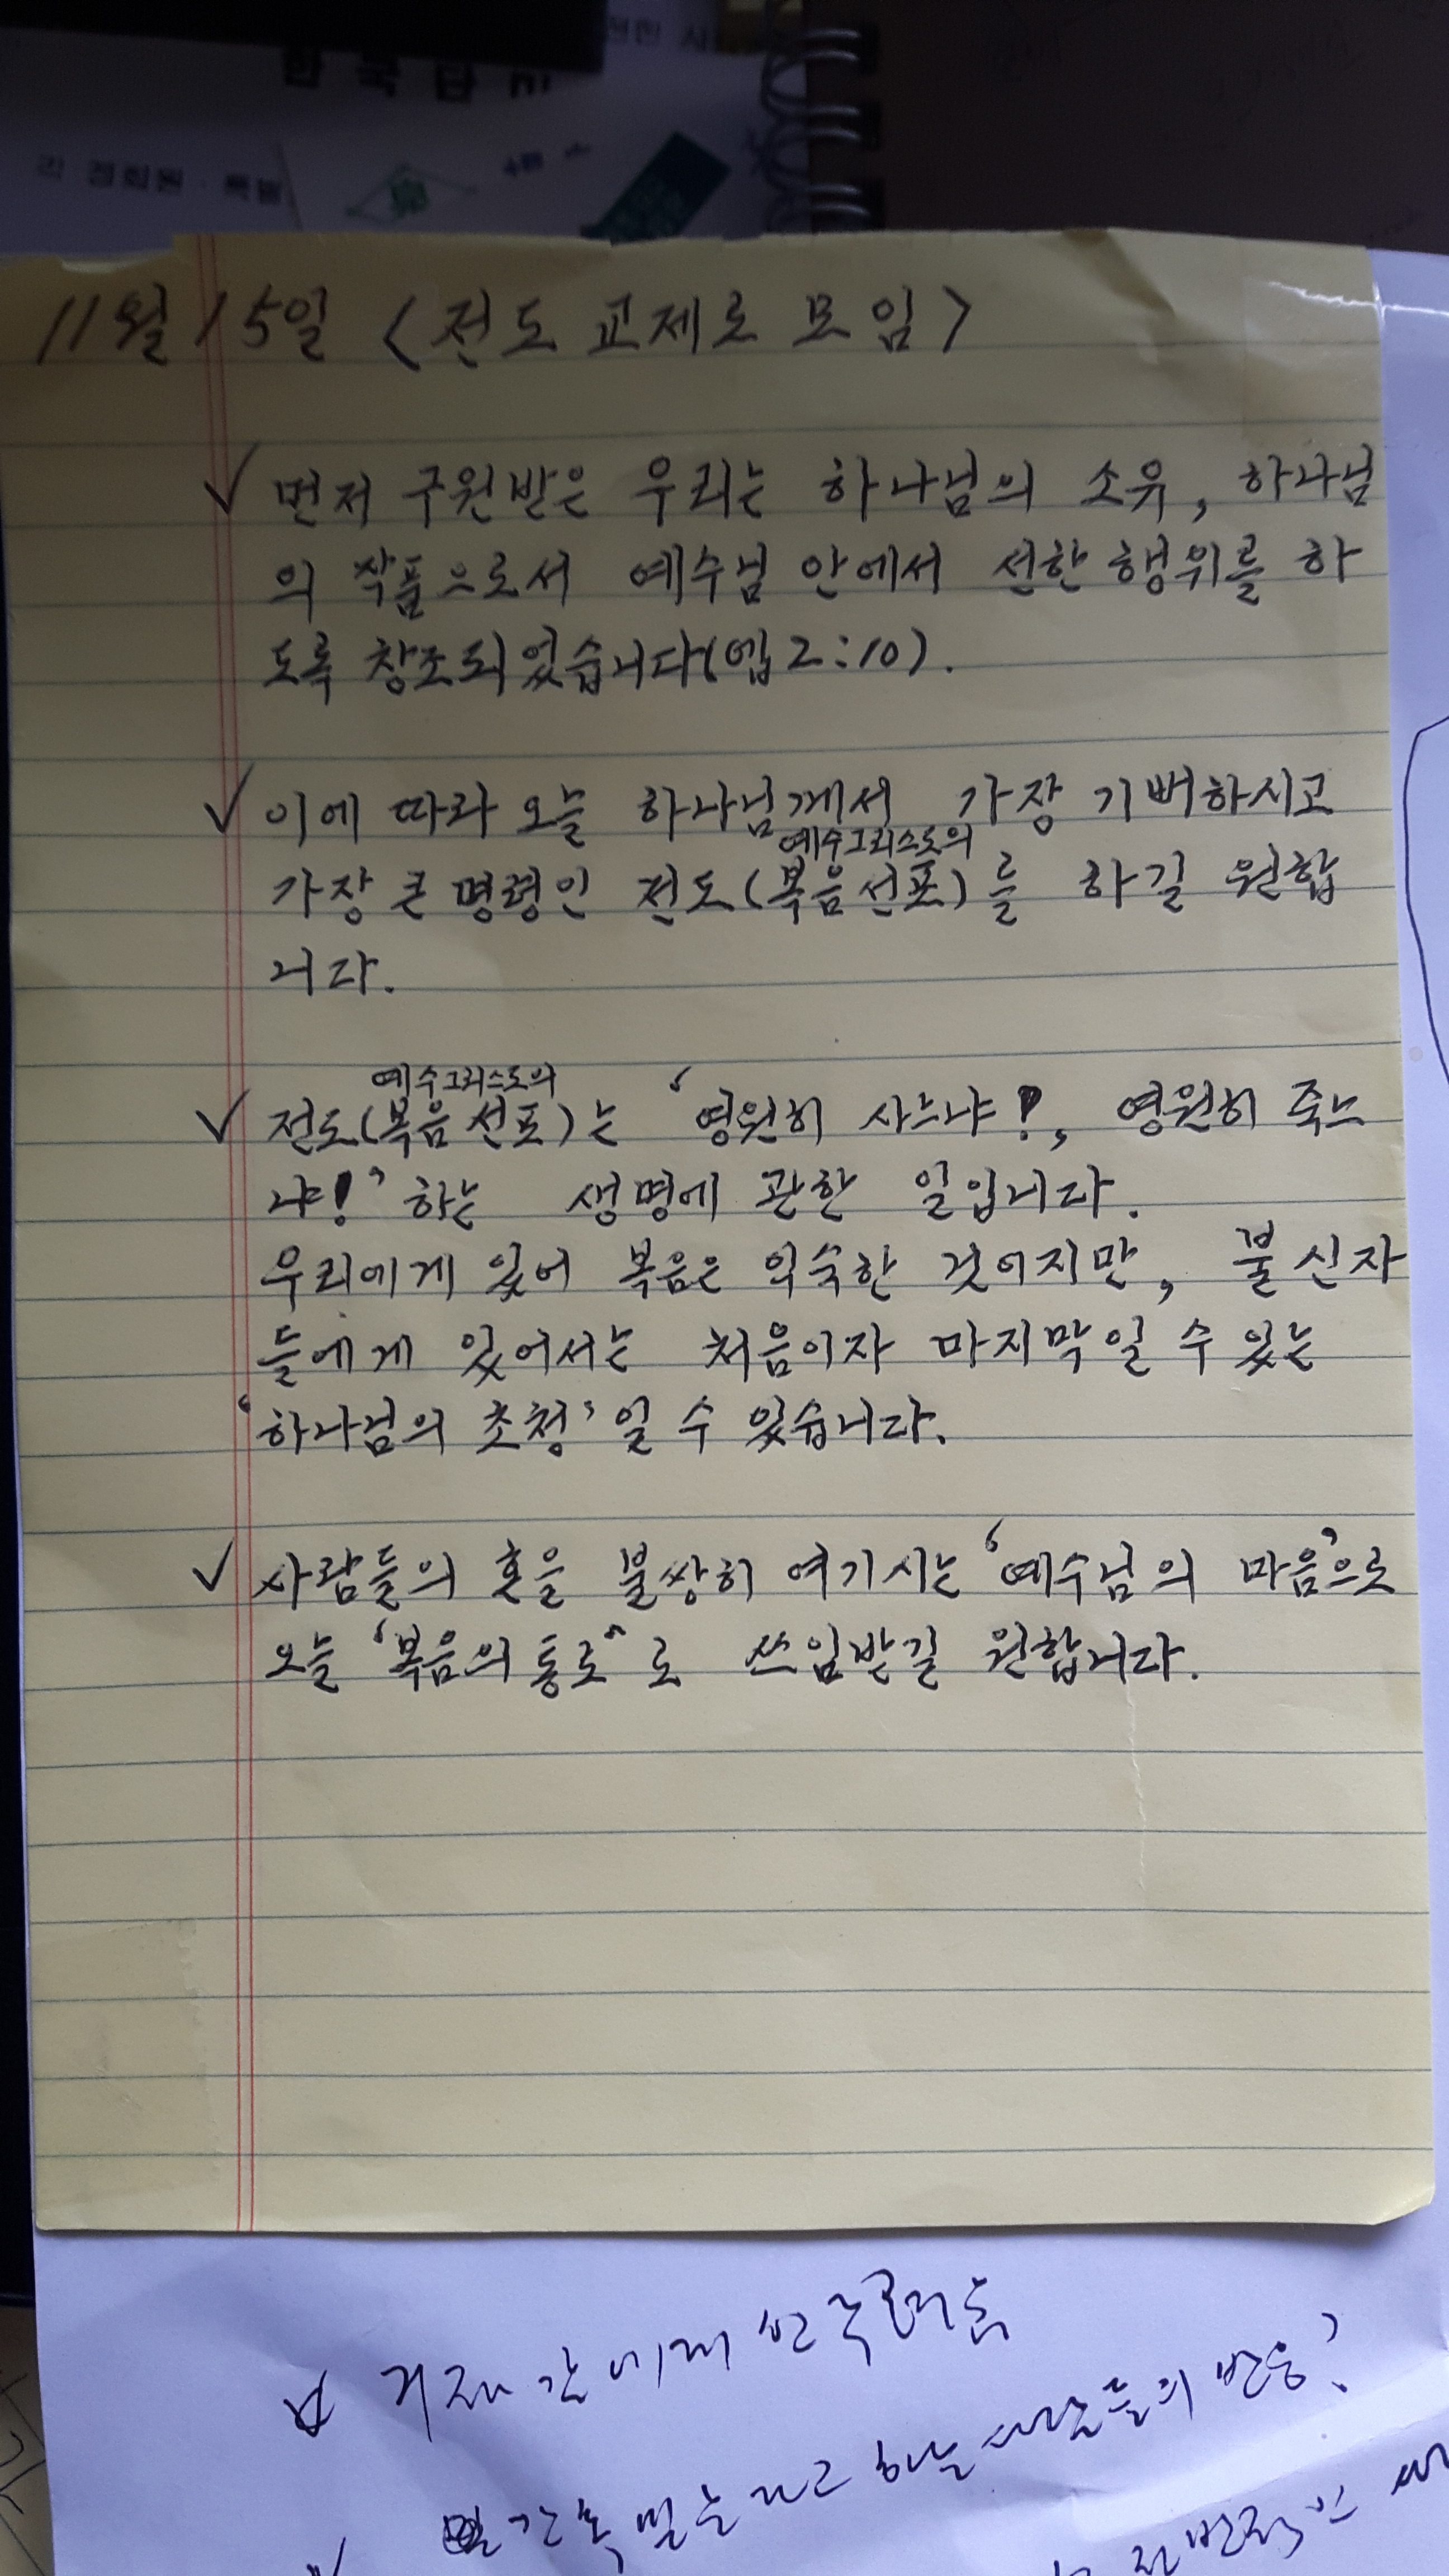 11월 15일 <전도 교제로 모임>
✓ 먼저 구원받은 우리는 하나님의 소유, 하나님
의 작품으로서 예수님 안에서 선한 행위를 하
도록 창조되었습니다(엡2:10).
✓ 이에 따라 오늘 하나님께서 가장 기뻐하시고
예수그리스도의
가장 큰 명령인 전도(복음선포)를 하길 원합
니다.
예수그리스도의
✓ 전도(복음 선포)는 '영원히 사느냐!, 영원히 죽느
냐!' 하는 생명에 관한 일입니다.
우리에게 있어 복음은 익숙한 것이지만, 불신자
들에게 있어서는 처음이자 마지막일 수 있는
'하나님의 초청'일 수 있습니다.
✓ 사람들의 혼을 불쌍히 여기시는 '예수님의 마음'으로
오늘 '복음의 통로'로 쓰임받길 원합니다.
하는 사람들의 반응?